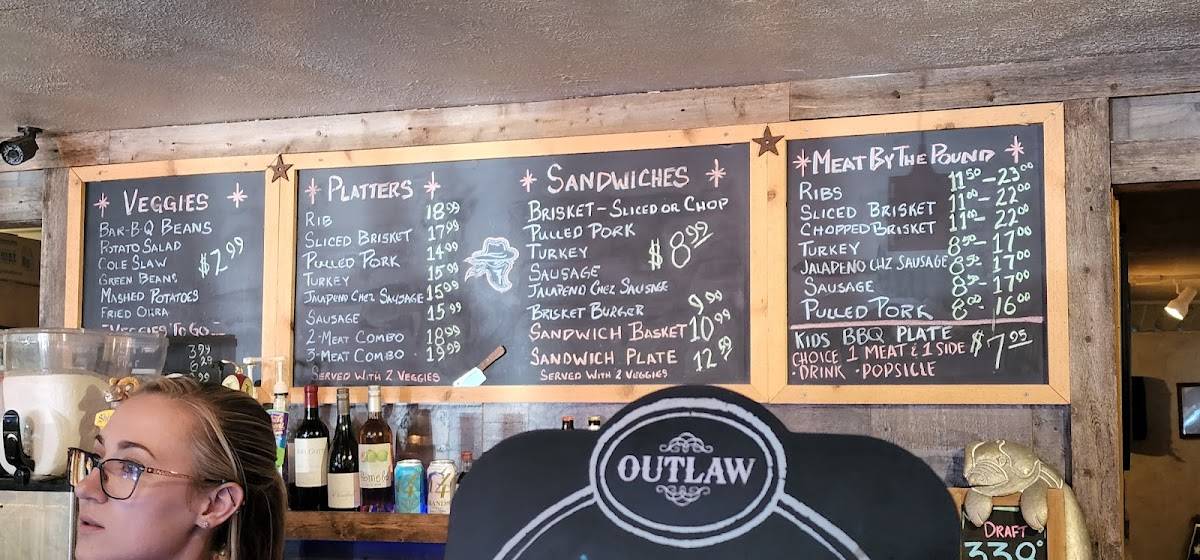 VEGGIES
BAR-B-Q BEANS
POTATO SALAD
COLE SLAW
GREEN BEANS
MASHED POTATOES
FRIED OKRA
$2.99
VEGGIES TO GO
3.99
6.29
PLATTERS
RIB 18.99
SLICED BRISKET 17.99
PULLED PORK 14.99
TURKEY 15.99
JALAPENO CHEZ SAUSAGE 15.99
SAUSAGE 15.99
2-MEAT COMBO 18.99
3-MEAT COMBO 19.99
SERVED WITH 2 VEGGIES
SANDWICHES
BRISKET-SLICED OR CHOP
PULLED PORK
TURKEY
SAUSAGE
JALAPENO CHEZ SAUSAGE
$8.99
BRISKET BURGER 9.99
SANDWICH BASKET 10.99
SANDWICH PLATE 12.59
SERVED WITH 2 VEGGIES
MEAT BY THE POUND
RIBS 11.50-23.00
SLICED BRISKET 11.00-22.00
CHOPPED BRISKET 11.00-22.00
TURKEY 8.50-17.00
JALAPENO CHZ SAUSAGE 8.50-17.00
SAUSAGE 8.50-17.00
PULLED PORK 8.00-16.00
KIDS BBQ PLATE
CHOICE 1 MEAT & 1 SIDE
·DRINK ·POPSICLE
$7.95
OUTLAW
DRAFT